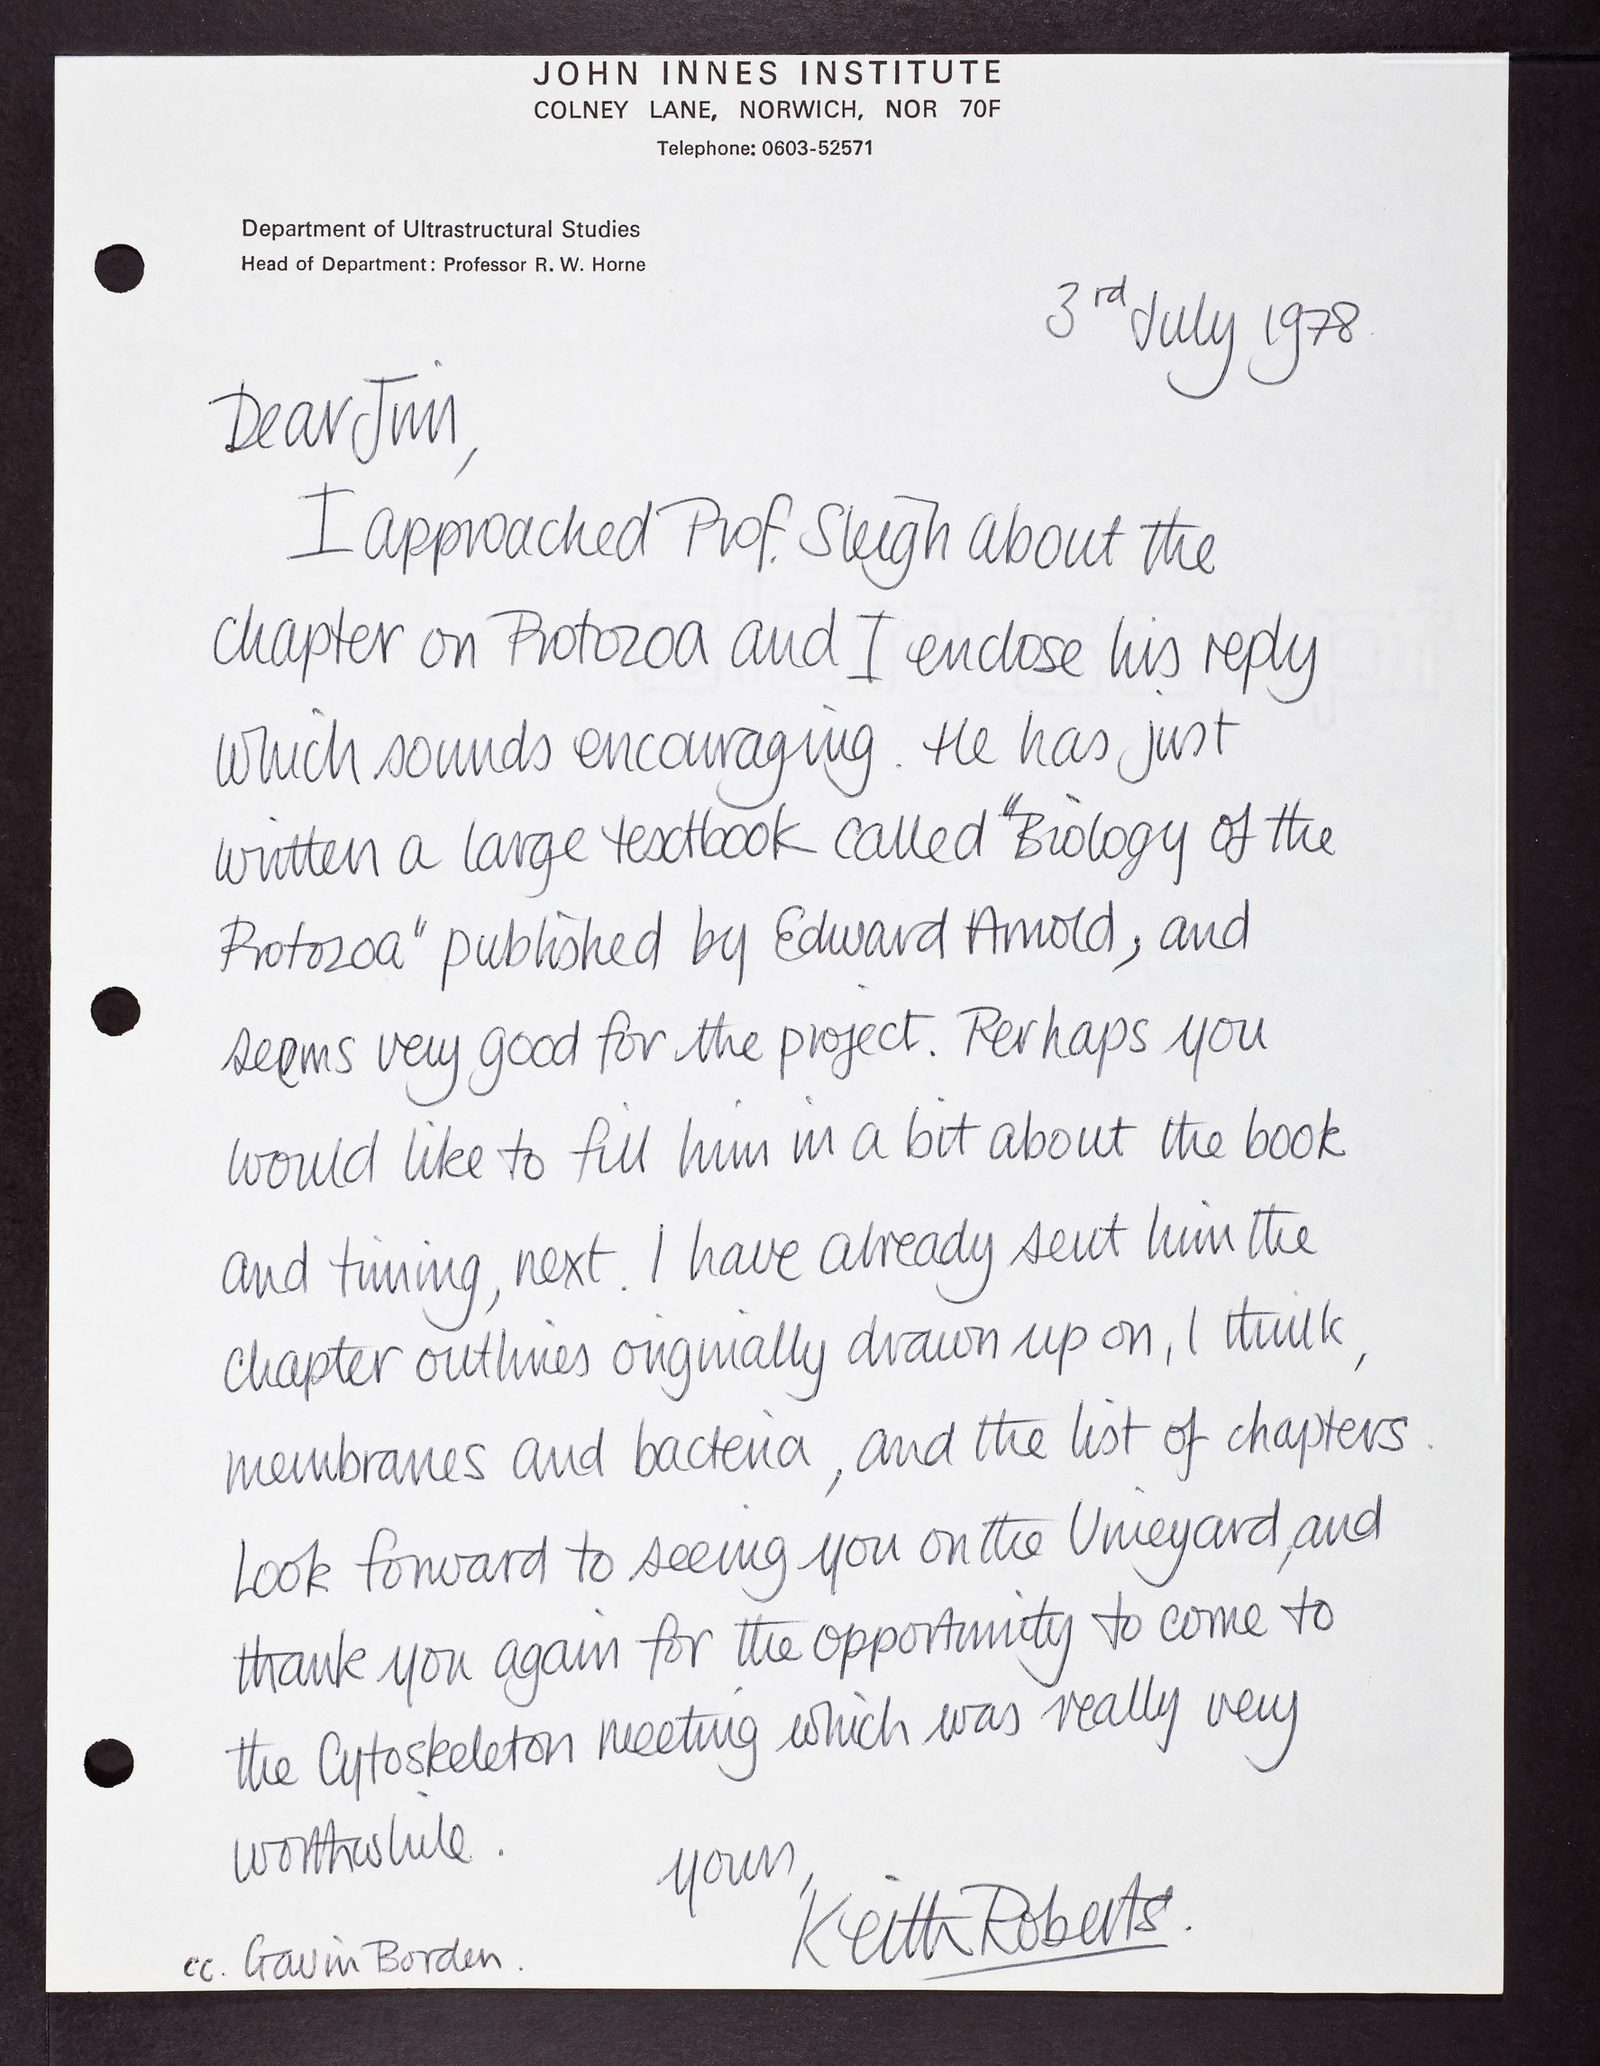 JOHN INNES INSTITUTE
COLNEY LANE, NORWICH, NOR 70F
Telephone: 0603-52571
Department of Ultrastructural Studies
Head of Department: Professor R. W. Horne
3rd July 1978
Dear Jim,
I approached Prof. Sleigh about the
chapter on Protozoa and I enclose his reply
which sounds encouraging. He has just
written a large textbook called "Biology of the
Protozoa" published by Edward Arnold, and
seems very good for the project. Perhaps you
would like to fill him in a bit about the book
and timing, next. I have already sent him the
chapter outlines originally drawn up on, I think,
membranes and bacteria, and the list of chapters.
Look forward to seeing you on the Vineyard, and
thank you again for the opportunity to come to
the Cytoskeleton meeting which was really very
worthwhile.
Yours,
Keith Roberts.
cc. Gavin Borden.